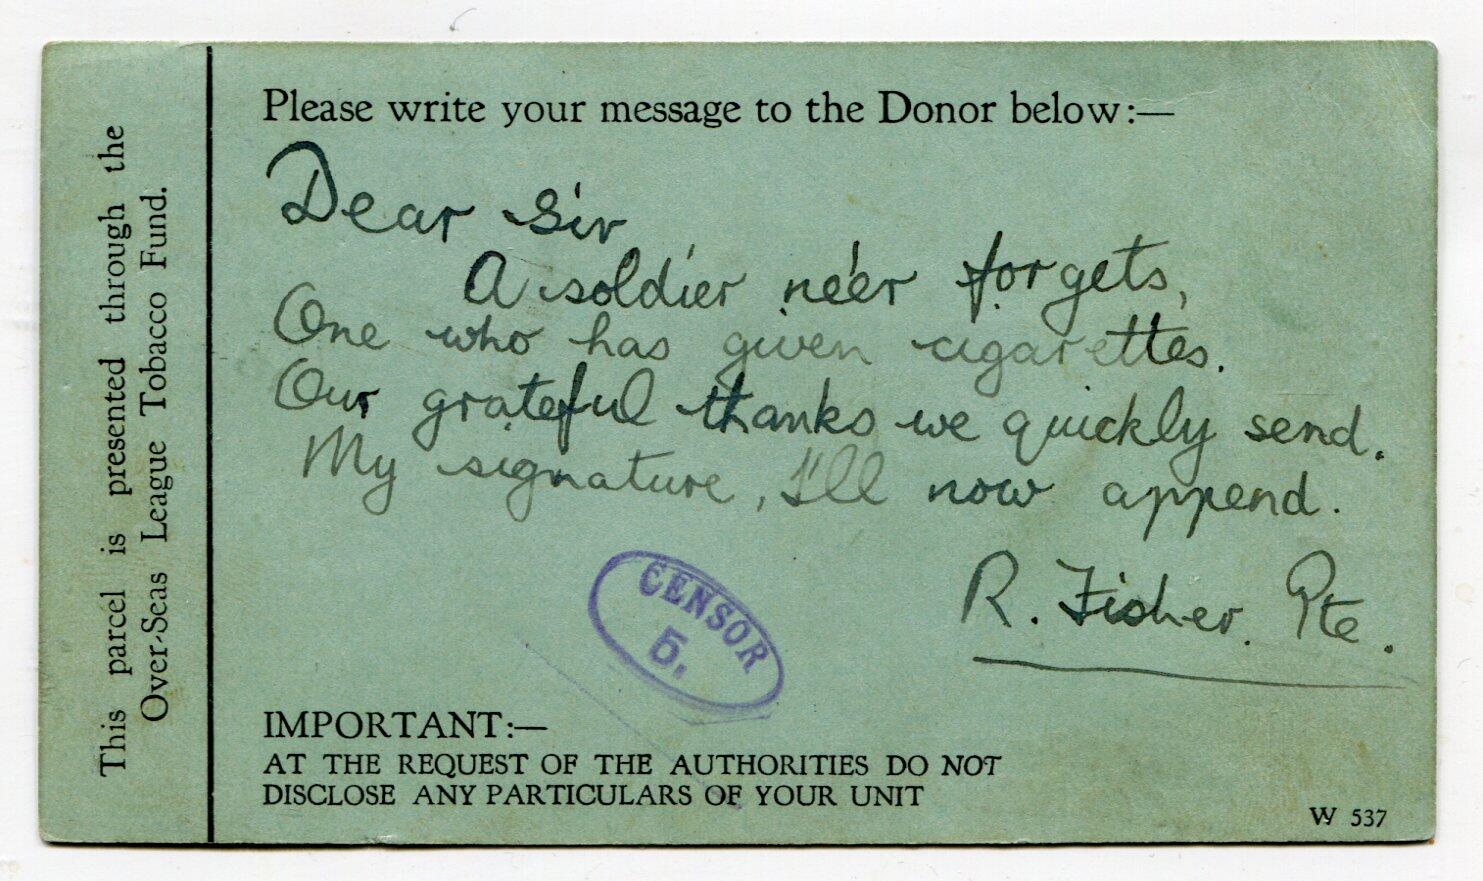 This parcel is presented through the
Over-Seas League Tobacco Fund.
Please write your message to the Donor below:—
Dear Sir
A soldier ne'er forgets,
One who has given cigarettes.
Our grateful thanks we quickly send.
My signature, I'll now append.
R. Fisher. Pte.
CENSOR
5.
IMPORTANT:—
AT THE REQUEST OF THE AUTHORITIES DO NOT
DISCLOSE ANY PARTICULARS OF YOUR UNIT
W 537